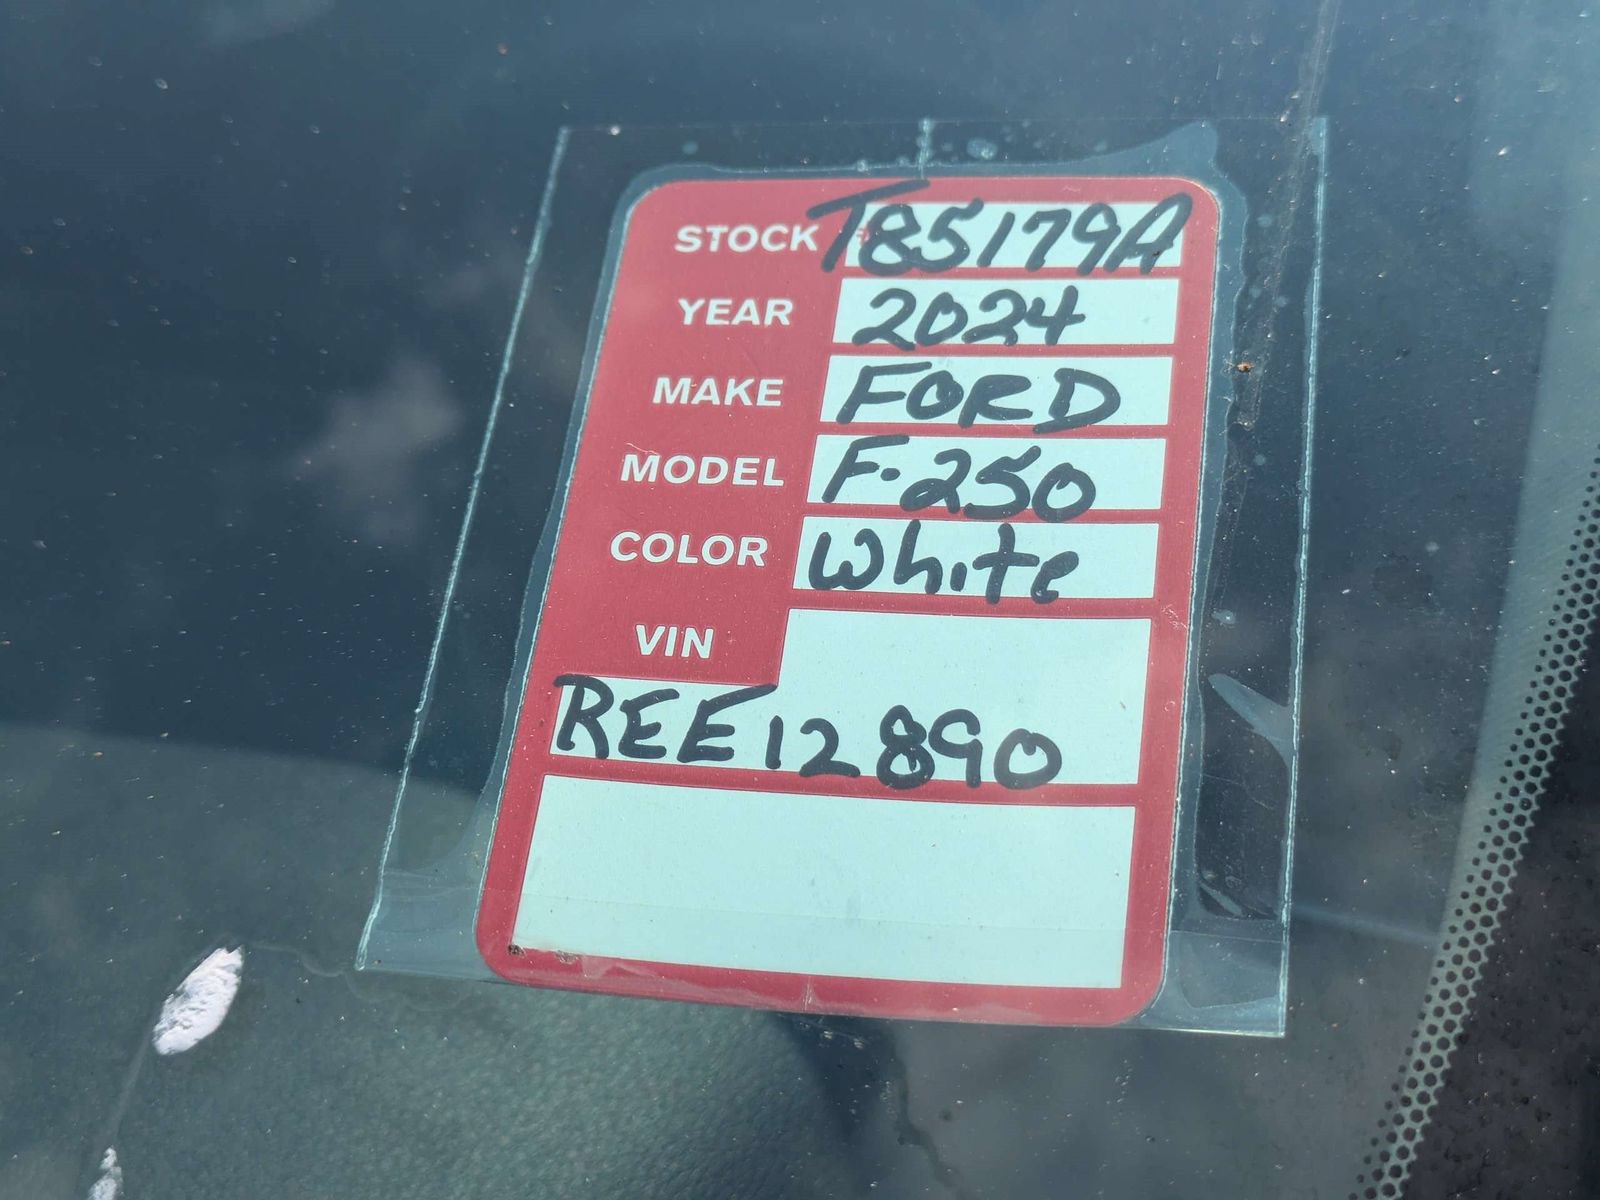 STOCK T85179A
YEAR 2024
MAKE FORD
MODEL F-250
COLOR White
VIN
REE12890